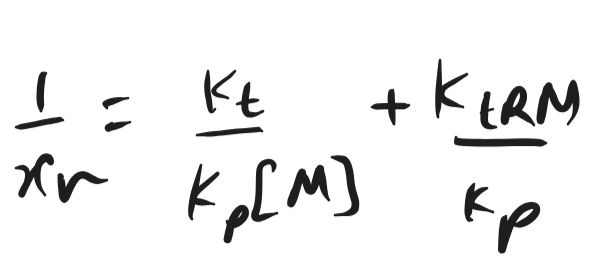 1/xn = Kt/Kp[M] + KtRM/Kp